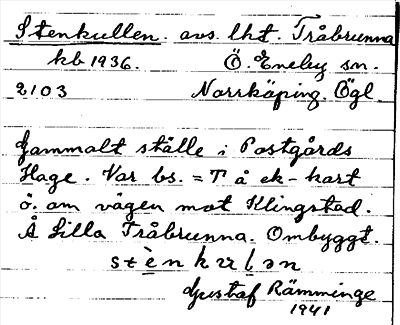 Stenkullen. avs. lht. Tråbrunna
kb 1936. Ö. Eneby sn.
2103 Norrköping. Ögl.
Gammalt ställe i Postgårds
Hage. Var bs. = T å ek-kart
ö. om vägen mot Klingstad.
Å Lilla Tråbrunna. Ombyggt.
Gustaf Rämminge
1941